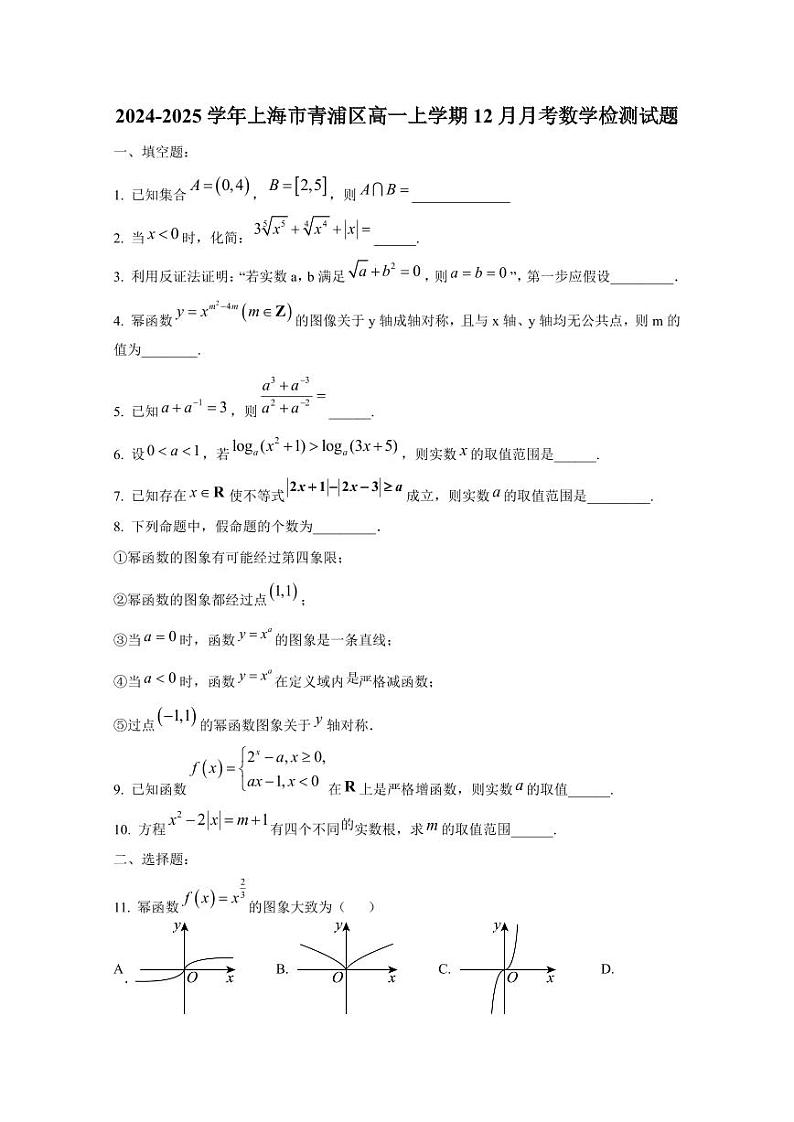 2024-2025 学年上海市青浦区高一上学期 12 月月考数学检测试题
一、填空题：
1. 已知集合 A = (0,4)，B = [2,5]，则 A∩B = ______________
2. 当 x < 0 时，化简：3⁵√x⁵ + ⁴√x⁴ + |x| = ______.
3. 利用反证法证明：“若实数 a，b 满足 √a + b² = 0，则 a = b = 0”，第一步应假设_________.
4. 幂函数 y = x^(m²−4m) (m∈Z) 的图像关于 y 轴成轴对称，且与 x 轴、y 轴均无公共点，则 m 的
值为________.
5. 已知 a + a⁻¹ = 3，则 (a³ + a⁻³)/(a² + a⁻²) = ______.
6. 设 0 < a < 1，若 logₐ(x² +1) > logₐ(3x+5)，则实数 x 的取值范围是______.
7. 已知存在 x∈R 使不等式 |2x+1|−|2x−3| ≥ a 成立，则实数 a 的取值范围是_________.
8. 下列命题中，假命题的个数为_________.
①幂函数的图象有可能经过第四象限；
②幂函数的图象都经过点 (1,1)；
③当 a = 0 时，函数 y = xᵃ 的图象是一条直线；
④当 a < 0 时，函数 y = xᵃ 在定义域内是严格减函数；
⑤过点 (−1,1) 的幂函数图象关于 y 轴对称．
9. 已知函数 f(x) = {2ˣ − a, x ≥ 0, ax −1, x < 0 在 R 上是严格增函数，则实数 a 的取值______.
10. 方程 x² − 2|x| = m +1 有四个不同的实数根，求 m 的取值范围______.
二、选择题：
11. 幂函数 f(x) = x^(2/3) 的图象大致为（ ）
A. y O x B. y O x C. y O x D.